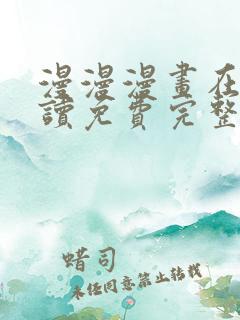 漫漫漫畫在
讀免費完整
蜡司
未经同意禁止转载